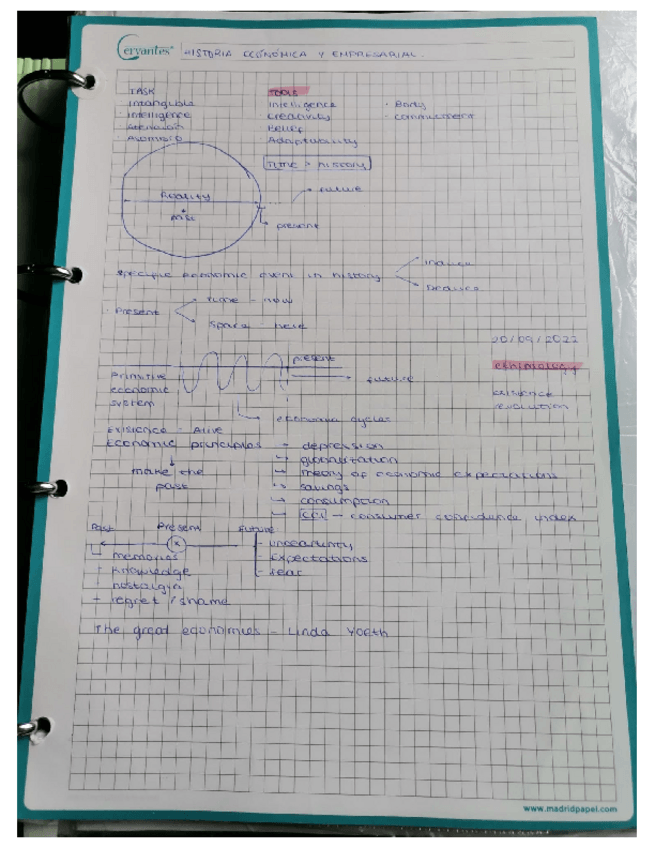 Cervantes
HISTORIA ECONÓMICA Y EMPRESARIAL
TASK
Intangible
Intelligence
TOOLS
Intelligence
Creativity
Belief
Adaptability
· Body
· Commitment
TIME > history
Reality
future
present
Specific economic event in history
Induce
Deduce
· Present
Time - now
Space - here
20/09/2022
Primitive
economic
system
present
future
economic cycles
existence
revolution
Existence - Alive
Economic principles
make the
past
depression
globalization
theory of economic expectations
savings
consumption
CCI - consumer confidence index
Past
Present
Future
x
memories
knowledge
nostalgia
regret / shame
uncertainty
expectations
fear
The great economies - Linda Yueh
www.madridpapel.com